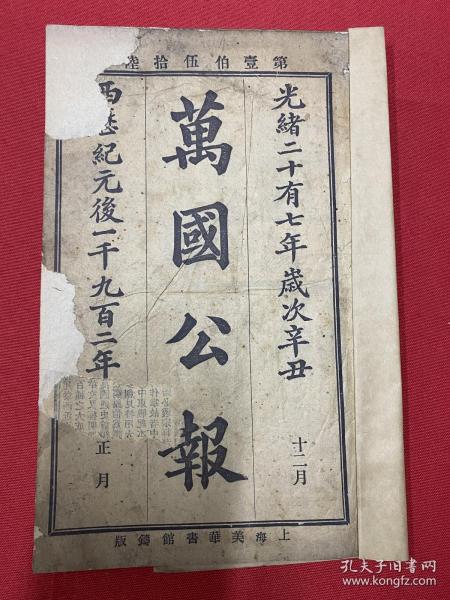 第壹伯伍拾陸
光緒二十有七年歲次辛丑
十二月
萬國公報
西歷紀元後一千九百二年
正月
上海美華書館鑄版
孔夫子旧书网